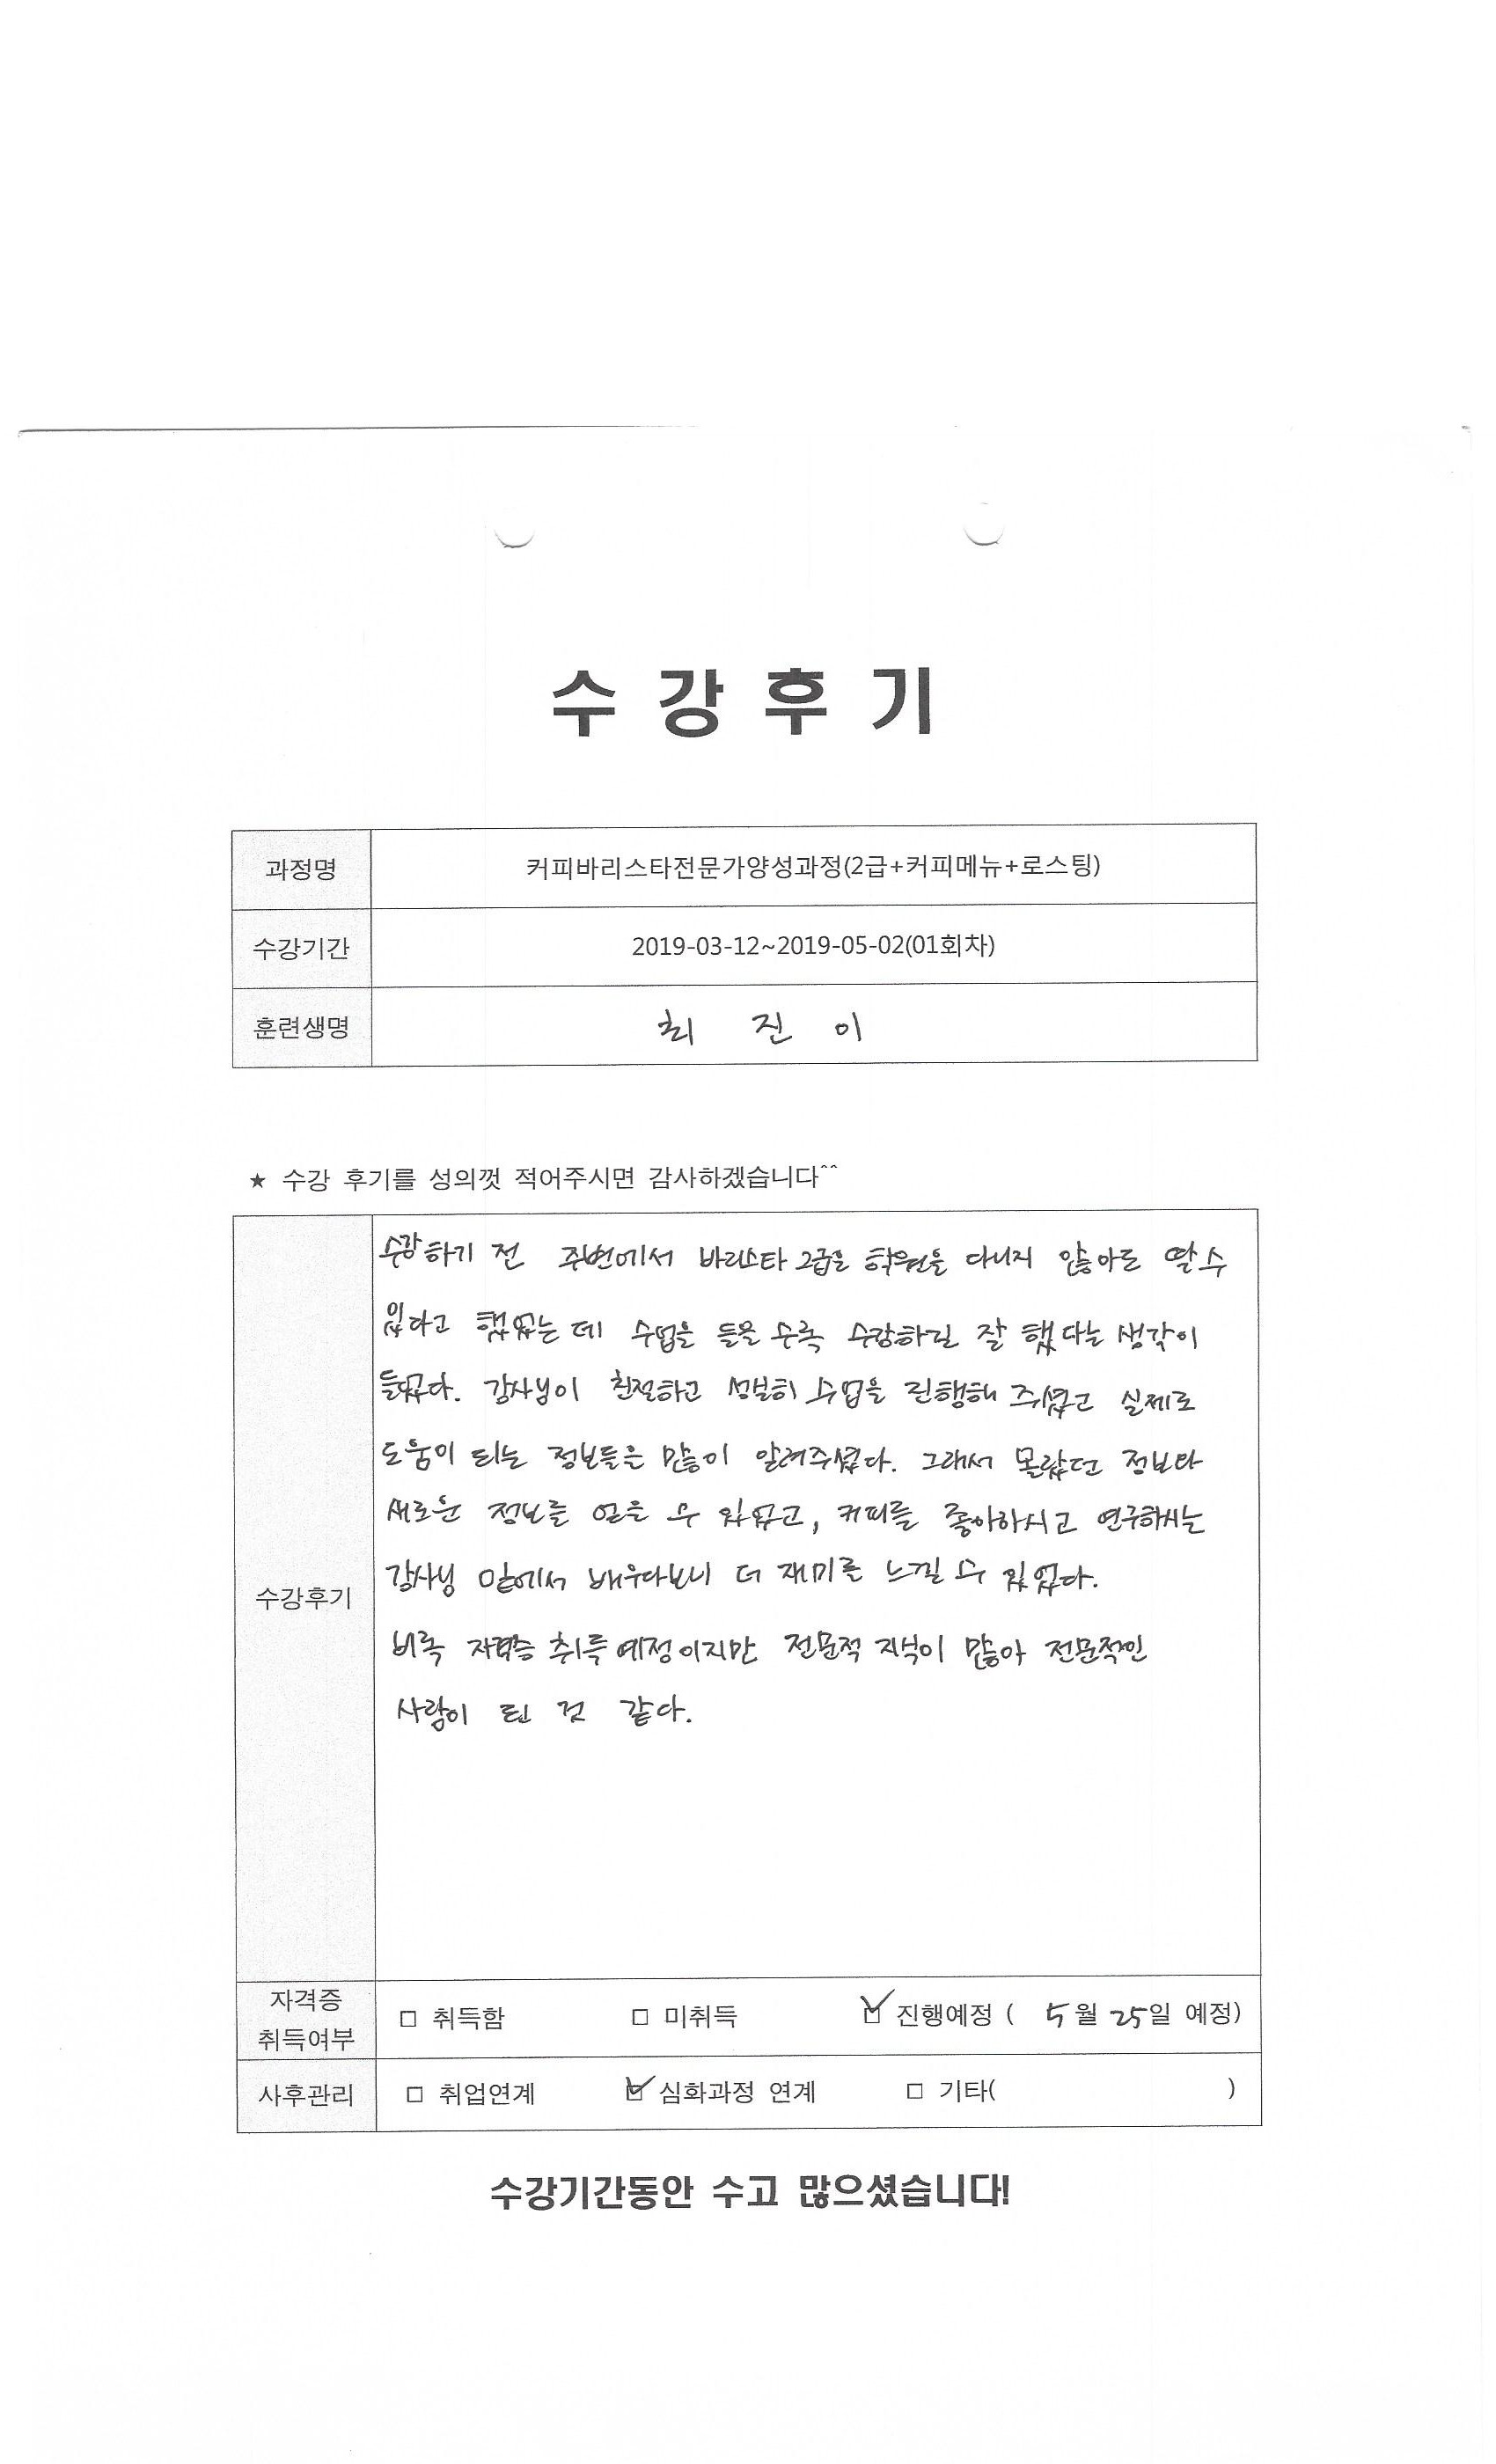 수 강 후 기
과정명 커피바리스타전문가양성과정(2급+커피메뉴+로스팅)
수강기간 2019-03-12~2019-05-02(01회차)
훈련생명 최 진 이
★ 수강 후기를 성의껏 적어주시면 감사하겠습니다^^
수강하기 전 주변에서 바리스타 2급은 학원을 다니지 않아도 딸 수
있다고 했었는 데 수업을 들을 수록 수강하길 잘 했다는 생각이
들었다. 강사님이 친절하고 성실히 수업을 진행해 주셨고 실제로
도움이 되는 정보들을 많이 알려주셨다. 그래서 몰랐던 정보와
새로운 정보를 얻을 수 있었고, 커피를 좋아하시고 연구하시는
강사님 앞에서 배우다보니 더 재미를 느낄 수 있었다.
수강후기
비록 자격증 취득예정이지만 전문적 지식이 많아 전문적인
사람이 된 것 같다.
자격증
취득여부 □ 취득함 □ 미취득 ☑ 진행예정 ( 5월 25일 예정)
사후관리 □ 취업연계 ☑ 심화과정 연계 □ 기타( )
수강기간동안 수고 많으셨습니다!